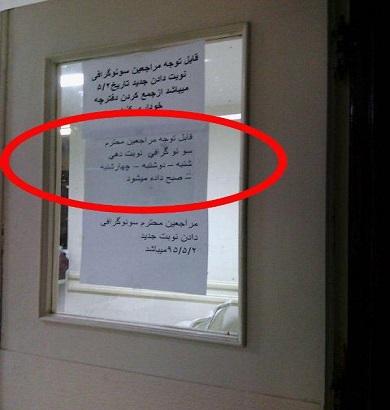 قابل توجه مراجعین سونوگرافی
نوبت دادن جدید تاریخ ۵/۲
میباشد ازجمع کردن دفترچه
قابل توجه مراجعین محترم
سونوگرافی نوبت دهی
شنبه – دوشنبه – چهارشنبه
صبح داده میشود
مراجعین محترم سونوگرافی
دادن نوبت جدید
۹۵/۵/۲میباشد